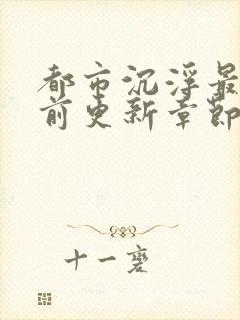 都市沉浮最
前更新章節
十一宽